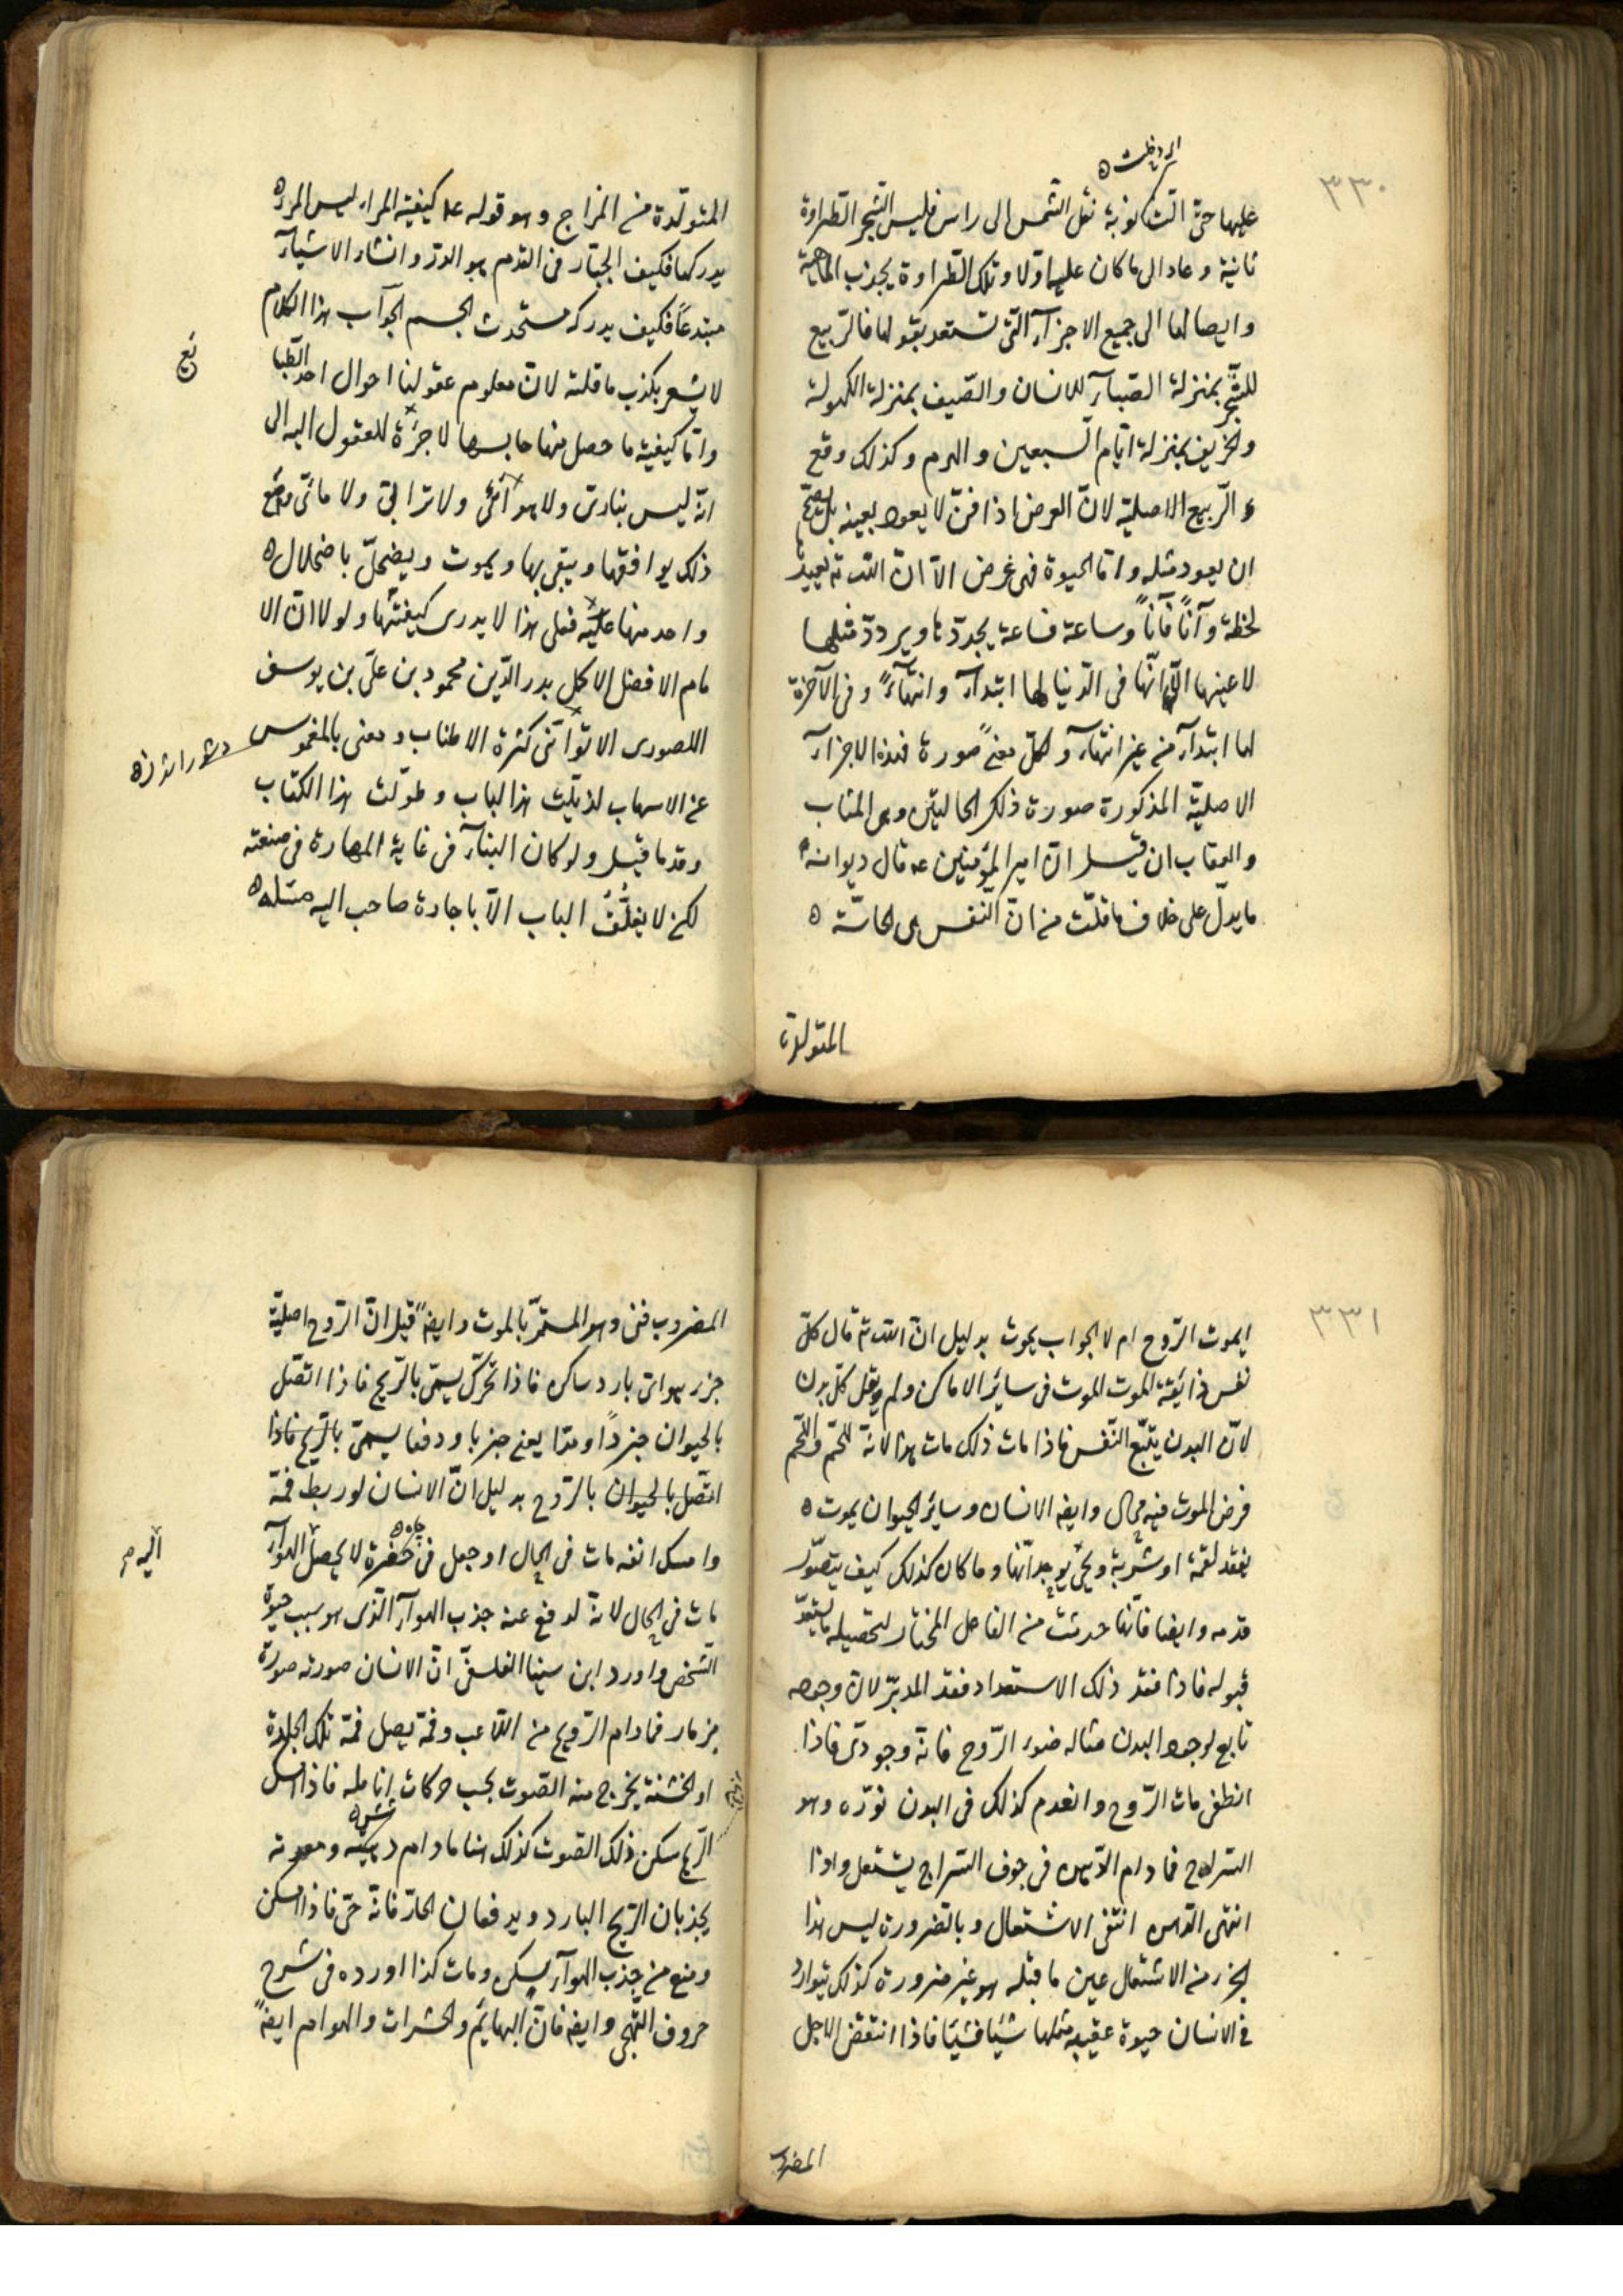 ٣٣٠
عليها حتى اتت نوبة نقل الشمس الى راس فلبس الشجر الطراوة
ثانية وعاد الى ما كان عليه اولا وتلك الطراوة بجذب المائية
وايصالها الى جميع الاجزآء التى تستعد بقبولها فالربيع
للشجر بمنزلة الصبآء للانسان والصيف بمنزلة الكهولة
والخريف بمنزلة ايام السبعين والهرم وكذلك وقع
الربيع الاصلية لانّ العرض اذا فنى لا يعود بعينه بل يصح
ان يعود مثله وامّا الحيوة فهى عرض الّا انّ الله تع يعيد
لحظة وآناً فآناً وساعة فساعة يجددها ويردد مثلها
لا عينها الّا انّها فى الدنيا لها ابتدآء وانتهآء وفى الآخرة
لها ابتدآء من غير انتهآء ولكل معنى صورة فهذه الاجزآء
الاصليّة المذكورة صورة ذلك الحاليتن وهى المثاب
والعقاب ان قيل انّ امير المؤمنين ع قال ديوانه
ما يدلّ على خلاف ما قلت من انّ النفس هى الحاسّة
المتولدة
المتولّدة من المزاج وهو قوله ع كيفية المراء ليس المرء
يدركها فكيف الجبّار فى القدم هو الذى انشاء الاشيآء
مبتدعاً فكيف يدركه مستحدث الجسم الجوآب هذا الكلام
لا يشعر بكذب ما قلته لانّ معلوم عقولنا احوال احد الطبا
يع
وامّا كيفية ما حصل منها حابسها لا جزءة للعقول اليه الى
انّه ليس بنارىّ ولا هوآئىّ ولا ترابىّ ولا مائىّ ومع
ذلك يوافقها ويبقى بها ويموت ويضمحلّ باضمحلال
واحد منها عليه فعلى هذا لا يدرى كيفيّتها ولولا انّ الا
مام الافضل الاكمل بدر الدّين محمود بن علىّ بن يوسف
اللصورى الاتواتنى كثرة الاطناب ومعنى بالمغموس
عن الاسهاب لذيّلت هذا الباب وطوّلت هذا الكتاب
وقد ما قيل ولو كان البنآء فى غاية المهارة فى صنعته
لكن لا يغلّق الباب الّا باجادة صاحب اليه مثله
٣٣١
ايموت الرّوح ام لا الجواب يموت بدليل انّ الله تع قال كلّ
نفس ذائقة الموت الموت فى سائر الاماكن ولم يقل كلّ بدن
لانّ البدن يتبّع النّفس فاذا مات ذلك مات هذا لانّه اللحم واللحم
فرض الموت فيه محال وايضا الانسان وسائر الحيوان يموت
بفقد لقمة او شربة ويحيى بوجدانها وما كان كذلك كيف يتصوّر
قدمه وايضا فانّها حدثت من الفاعل المختار لتحصيله ما يستعدّ
قبوله فاذا فقد ذلك الاستعداد فقد المدبّر لانّ وجوده
تابع لوجود البدن مثاله ضوء الرّوح فانّه وجودىّ فاذا
انطفى مات الرّوح وانعدم كذلك فى البدن نوّره وهو
السراج فما دام الدّهن فى جوف السّراج يشتعل واذا
انتهى الدّهن انتفى الاشتعال وبالضرورة ليس هذا
الجزء من الاشتعال عين ما قبله هو غير ضرورة كذلك يتوارد
فى الانسان حيوة عقيب مثلها شيئا فشيئا فاذا انتقض الاجل
المضروب
المضروب فنى وهو المستمرّ بالموت وايضاً قيل انّ الرّوح اصليّة
جزء هوائى بارد ساكن فاذا تحرّك يسمّى بالرّيح فاذا اتّصل
بالحيوان جزءاً ومدّا يعنى جزبا ودفعا يسمّى بالرّيح فاذا
اتّصل بالحيوان بالرّوح بدليل انّ الانسان لو ربط فمه
وامسك انفه مات فى الحال او جعل فى حفرة لا يحصل الهوآء
اليه م
مات فى الحال لانّه لو فع عنه جذب الهوآء الّذى هو سبب حيوة
الشخص واورد ابن سينا الفلسفىّ انّ الانسان صورته صورة
مزمار فما دام الرّيح من اللاعب وفمه يصل فمه تلك الجلدة
او الخشنة يخرج منه الصّوت بحسب حركات انامله فاذا امسك
الرّيح سكن ذلك الصّوت كذلك هنا ما دام ريته ومعدته
يجذبان الرّيح البارد ويدفعان الحارّ فانّه حىّ فاذا سكن
ومنع من جذب الهوآء يسكن ومات كذا اورده فى شرح
حروف التّهجّى وايضا فانّ البهايم والحشرات والهوام ايضاً